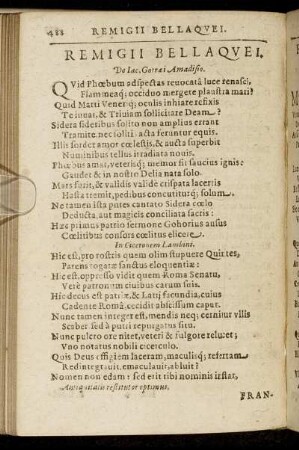 488 REMIGII BELLAQVEI.
REMIGII BELLAQVEI.
De Iac. Gorræi Amadisio.
QVid Phœbum adspectas reuocatâ luce renasci,
Flammeaq; occiduo mergete plaustra mari?
Quid Matti Veneriq; oculis inhiare refixis
Te iouat, & Triuiam sollicitare Deam?
Sidera sideribus solito non amplius errant
Tramite, nec soliti acta feruntur equis.
Illis sordet amor cœlestis, & aucta superbit
Numinibus tellus irradiata nouis.
Phœbus amat, veterisq; memor fit saucius ignis:
Gaudet & in nostro Delia nata solo.
Mars furit, & validis validè crispata lacertis
Hasta tremit, pedibus concutiturq; solum.
Ne tamen ista putes cantato Sidera cœlo
Deducta, aut magicis conciliata sacris:
Hæc primus patrio sermone Gohorius ausus
Cœlitibus consors cœlitus elicere.
In Ciceronem Lambini.
Hic est, pro rostris quem olim stupuere Quirites,
Parens togatæ sanctus eloquentiæ:
Hic est, oppresso vidit quem Roma Senatu,
Verè patronum ciuibus carum suis.
Hic decus est patriæ, & Latij fecundia, cuius
Cadente Româ, cecidit altissimum caput.
Nunc tamen integer est, mendis neq; cernitur vllis
Scaber sed à puti repurgatus situ.
Nunc pulcro ore nitet, veteri & fulgore reluxet;
Vno notatus nobili cicerculo.
Quis Deus effigiem laceram, maculisq; refertam
Redintegrauit, emaculauit, abluit?
Nomen non edam: sed erit tibi nominis instar,
Antiquitatis restitutor optimus.
FRAN-